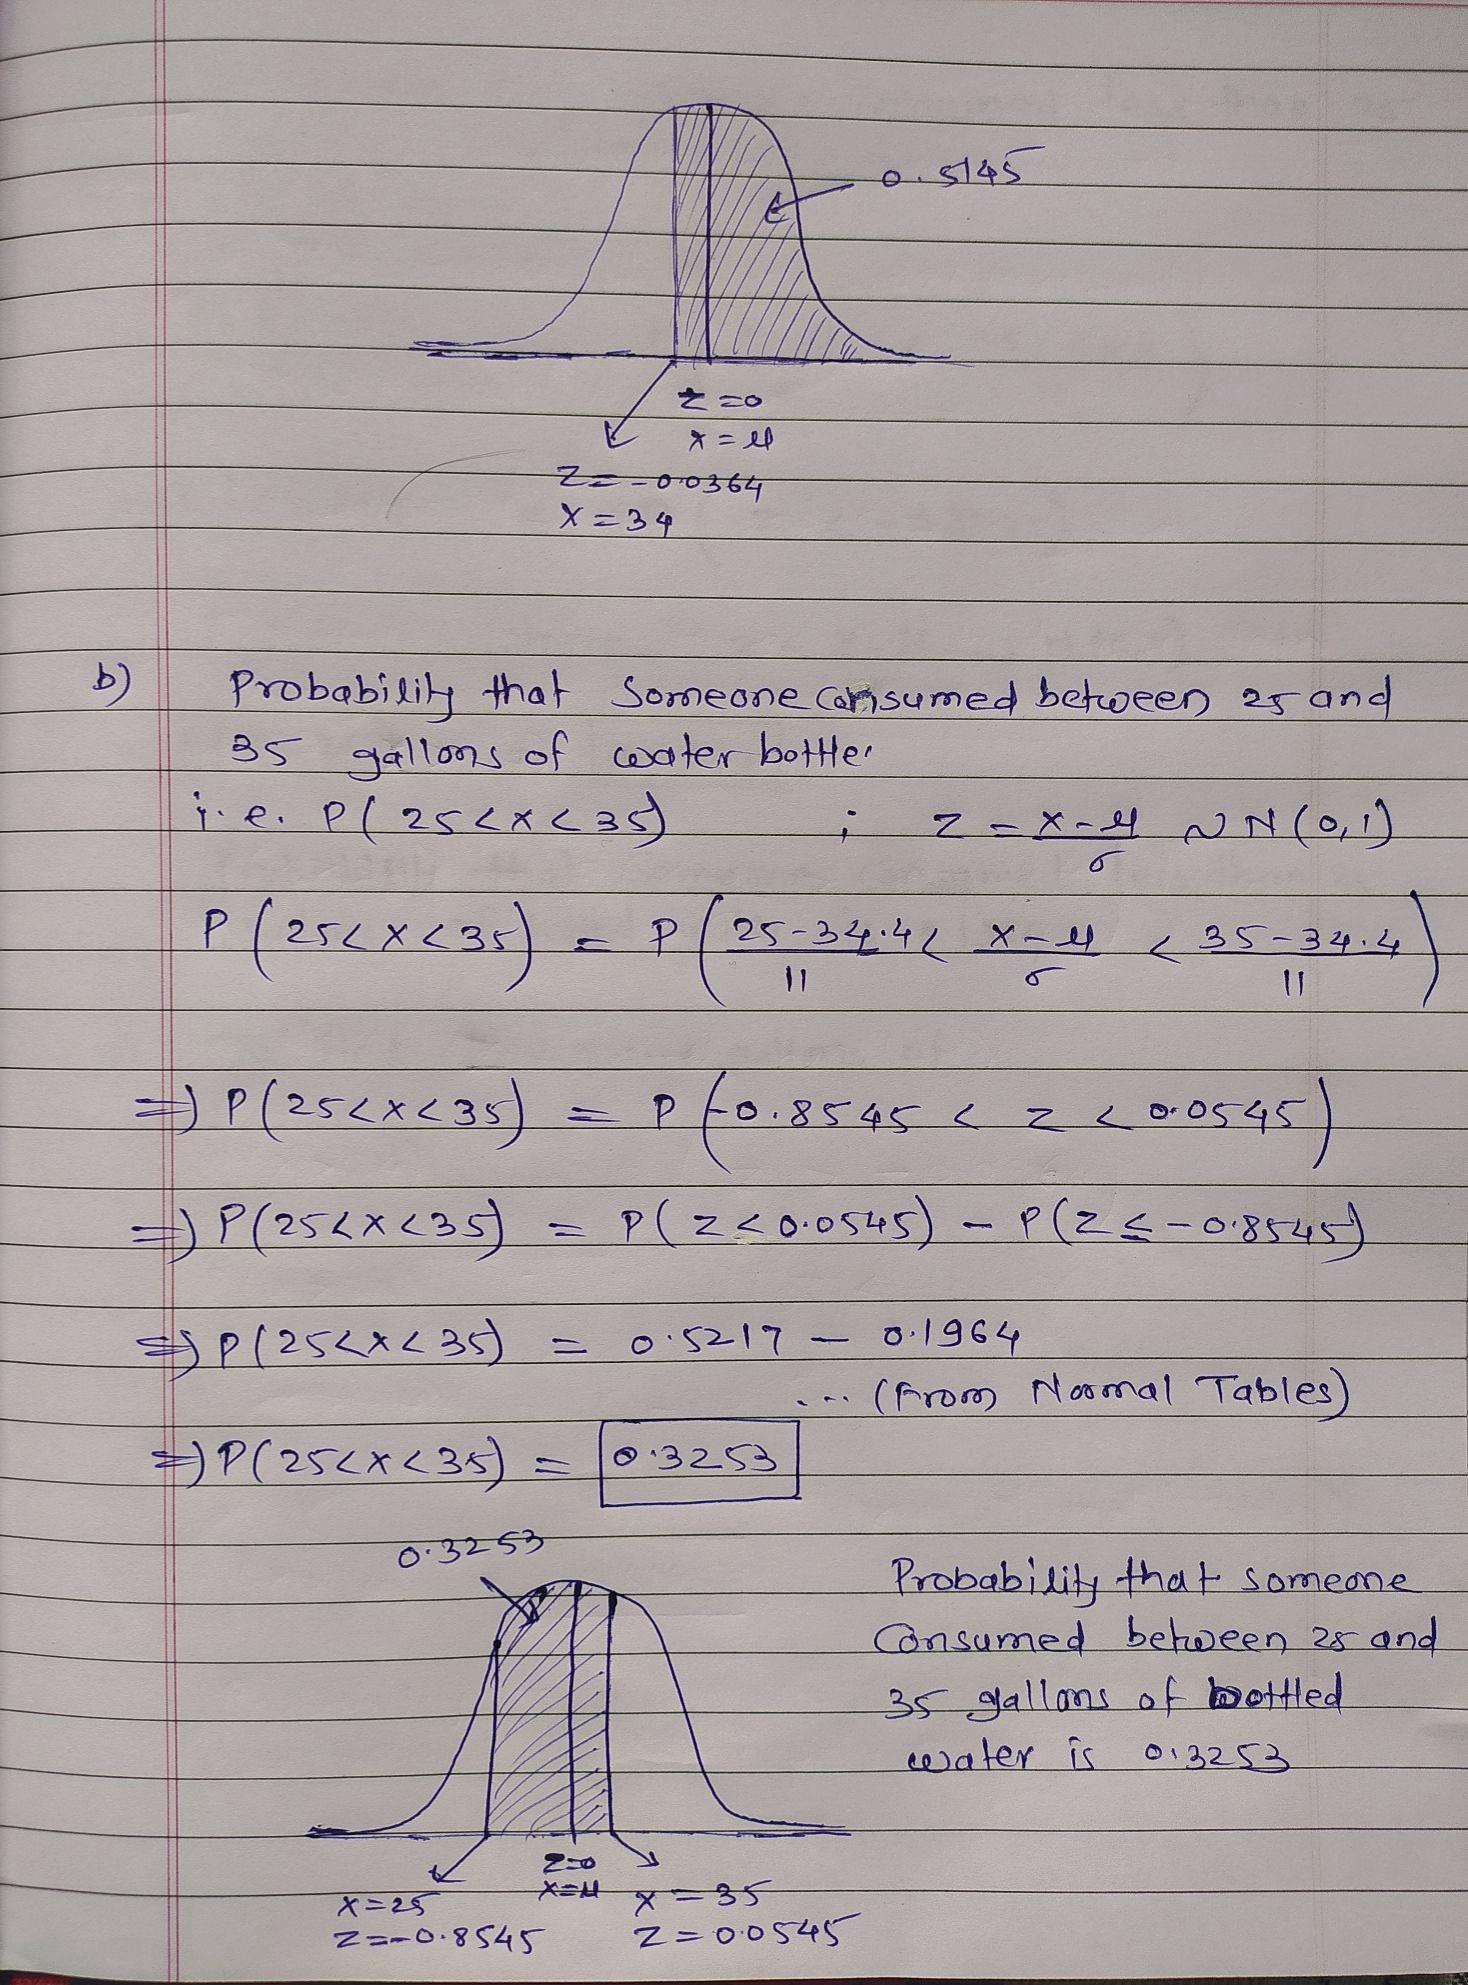 0.5145
z=0
x=μ
z=-0.0364
x=34
b) Probability that Someone consumed between 25 and
35 gallons of water bottle.
i.e. P(25<x<35) ; z = x-μ/σ ~ N(0,1)
P(25<x<35) = P(25-34.4/11 < x-μ/σ < 35-34.4/11)
⇒ P(25<x<35) = P(-0.8545 < z < 0.0545)
⇒ P(25<x<35) = P(z<0.0545) - P(z≤-0.8545)
⇒ P(25<x<35) = 0.5217 - 0.1964
... (From Normal Tables)
⇒ P(25<x<35) = 0.3253
0.3253
Probability that someone
Consumed between 25 and
35 gallons of bottled
water is 0.3253
z=0
x=μ
x=25
z=-0.8545
x=35
z=0.0545